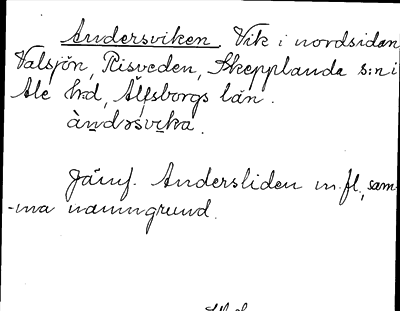 Andersviken. Vik i nordsidan
Valsjön, Risveden, Skepplanda s:n i
Ale hd, Älfsborgs län.
àndərsvika.
Jämf. Andersliden m. fl., sam-
-ma namngrund.